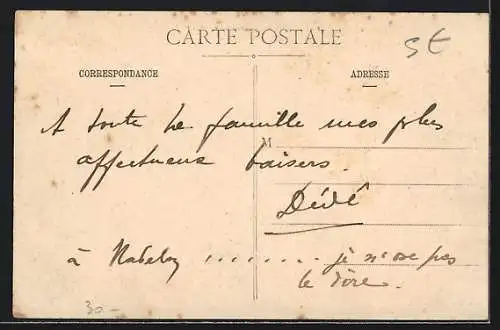 CARTE POSTALE
5€
CORRESPONDANCE
ADRESSE
M
A toute la famille mes plus
affectueux baisers.
Dédé
à ........ je n'ose pas
le dire.
30-